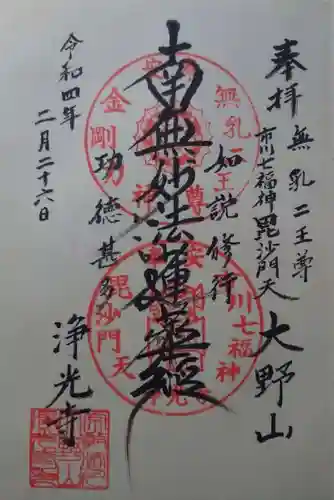 奉拝
無乳二王尊
市川七福神毘沙門天
大野山
如説修行
南無妙法蓮華経
功徳甚多
浄光寺
令和四年
二月二十六日
無乳二王尊
金剛力
川七福神
毘沙門天